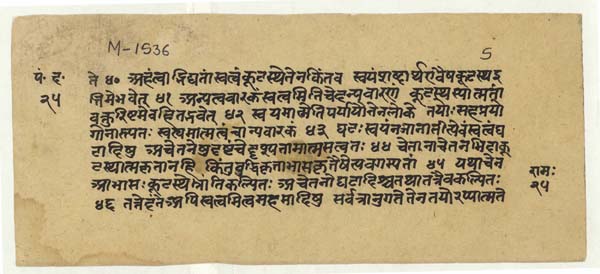 M-1536
5
पं. द.
२५
ते ४० अहंत्वाद्भिद्यतां स्वत्वं कूटस्थे तेन किं तव स्वयंशब्दार्थ एवैष कूटस्थ इ
ति मे भवेत् ४१ अन्यत्ववारकं स्वत्वमिति चेदन्यवारणं कूटस्थस्यात्मतां
वक्तुरिष्टमेव हि तद्भवेत् ४२ स्वयमात्मेति पर्यायौ तेन लोके तयोः सह प्रयो
गो नास्त्यतः स्वत्वमात्मत्वं चान्यवारकं ४३ घटः स्वयं न जानातीत्येवं स्वत्वं घ
टादिषु अचेतनेषु दृष्टं चेद्दृश्यतामात्मसत्वतः ४४ चेतनाचेतनभिदा कू
टस्थात्मकृता न हि किंतु बुद्धिकृताभासकृतैवेत्यवगम्यतां ४५ यथा चेतन
आभासः कूटस्थे भ्रांतिकल्पितः अचेतनो घटादिश्च तथा तत्रैव कल्पितः
४६ तत्तेदंते अपि स्वत्वमिव त्वमहमादिषु सर्वत्रानुगते तेन तयोरप्यात्मते
रामः
२५